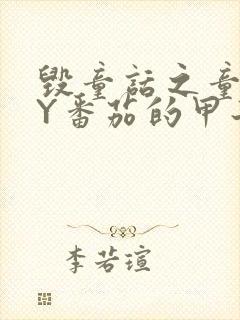 毁童话之童
Y番茄的甲
李若瑄